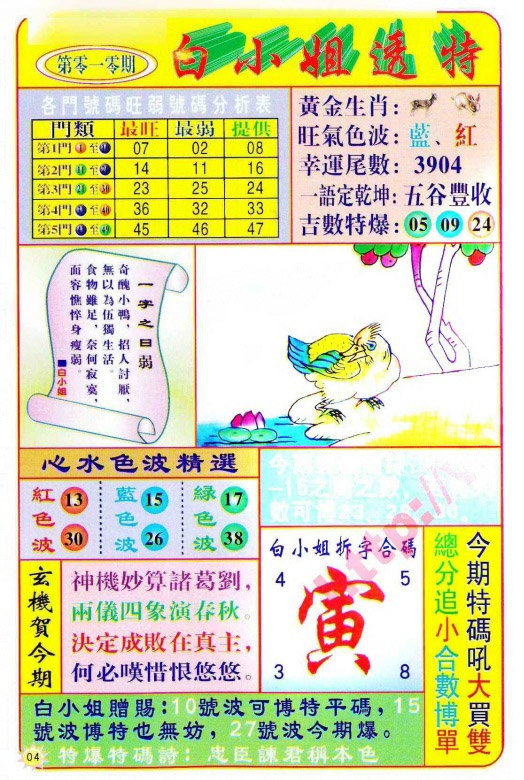 第零一零期
白小姐透特
各門號碼旺弱號碼分析表
門類 最旺 最弱 提供
第1門 1 至 10 07 02 08
第2門 11 至 20 14 11 16
第3門 21 至 30 23 25 24
第4門 31 至 40 36 32 33
第5門 41 至 49 45 46 47
黃金生肖：
旺氣色波：藍、紅
幸運尾數：3904
一語定乾坤：五谷豐收
吉數特爆：05 09 24
一字之曰弱
奇醜小鴨，招人討厭，
無以為伍獨生活。
食物雖足，奈何寂寞，
面容憔悴身瘦弱。
白小姐
心水色波精選
紅色波 13 30
藍色波 15 26
綠色波 17 38
玄機賀今期
神機妙算諸葛劉，
兩儀四象演春秋。
決定成敗在真主，
何必嘆惜恨悠悠。
白小姐拆字合碼
4 5
寅
3 8
http://
今期特碼吼大買雙
總分追小合數博單
白小姐贈賜：10號波可博特平碼，15
號波博特也無妨，27號波今期爆。
特爆特碼詩：忠臣諫君稱本色
04